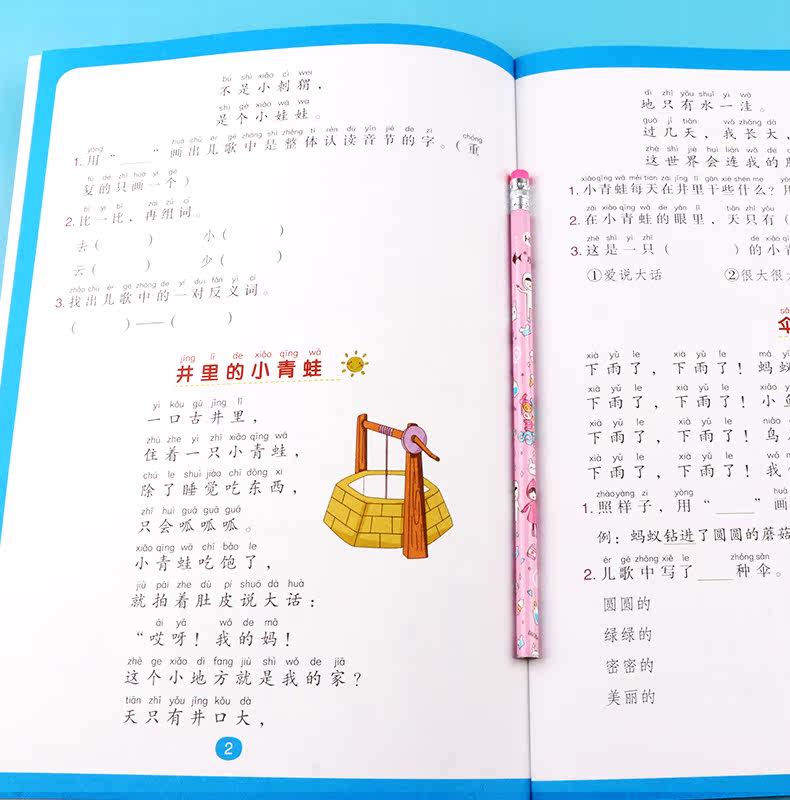 bú shì xiǎo cì wei
不是小刺猬，
shì gè xiǎo wá wa
是个小娃娃。
yòng huà chū ér gē zhōng shì zhěng tǐ rèn dú yīn jié de zì chóng
1.用“____”画出儿歌中是整体认读音节的字。(重
fù de zhǐ huà yí gè
复的只画一个)
bǐ yi bǐ zài zǔ cí
2.比一比，再组词。
去( ) 小( )
云( ) 少( )
zhǎo chū ér gē zhōng de yí duì fǎn yì cí
3.找出儿歌中的一对反义词。
( )——( )
jǐng lǐ de xiǎo qīng wā
井里的小青蛙
yì kǒu gǔ jǐng lǐ
一口古井里，
zhù zhe yì zhī xiǎo qīng wā
住着一只小青蛙，
chú le shuì jiào chī dōng xi
除了睡觉吃东西，
zhǐ huì guā guā guā
只会呱呱呱。
xiǎo qīng wā chī bǎo le
小青蛙吃饱了，
jiù pāi zhe dù pí shuō dà huà
就拍着肚皮说大话：
āi yā wǒ de mā
“哎呀！我的妈！
zhè ge xiǎo dì fang jiù shì wǒ de jiā
这个小地方就是我的家？
tiān zhǐ yǒu jǐng kǒu dà
天只有井口大，
2
dì zhǐ yǒu shuǐ yì wā
地只有水一洼。
guò jǐ tiān wǒ zhǎng dà
过几天，我长大，
zhè shì jiè huì lián wǒ de
这世界会连我的
xiǎo qīng wā měi tiān zài jǐng lǐ gàn xiē shén me
1.小青蛙每天在井里干些什么？
zài xiǎo qīng wā de yǎn lǐ tiān zhǐ yǒu
2.在小青蛙的眼里，天只有(
zhè shì yì zhī de xiǎo qīng
3.这是一只( )的小青
①爱说大话 ②很大很
sǎ
伞
xià yǔ le xià yǔ le mǎ yǐ
下雨了，下雨了！蚂蚁
xià yǔ le xià yǔ le xiǎo yú
下雨了，下雨了！小鱼
xià yǔ le xià yǔ le niǎo
下雨了，下雨了！鸟
xià yǔ le xià yǔ le wǒ
下雨了，下雨了！我
zhào yàng zi yòng huà
1.照样子，用“____”画
例：蚂蚁钻进了圆圆的蘑菇
ér gē zhōng xiě le zhǒng sǎn
2.儿歌中写了____种伞。
圆圆的
绿绿的
密密的
美丽的